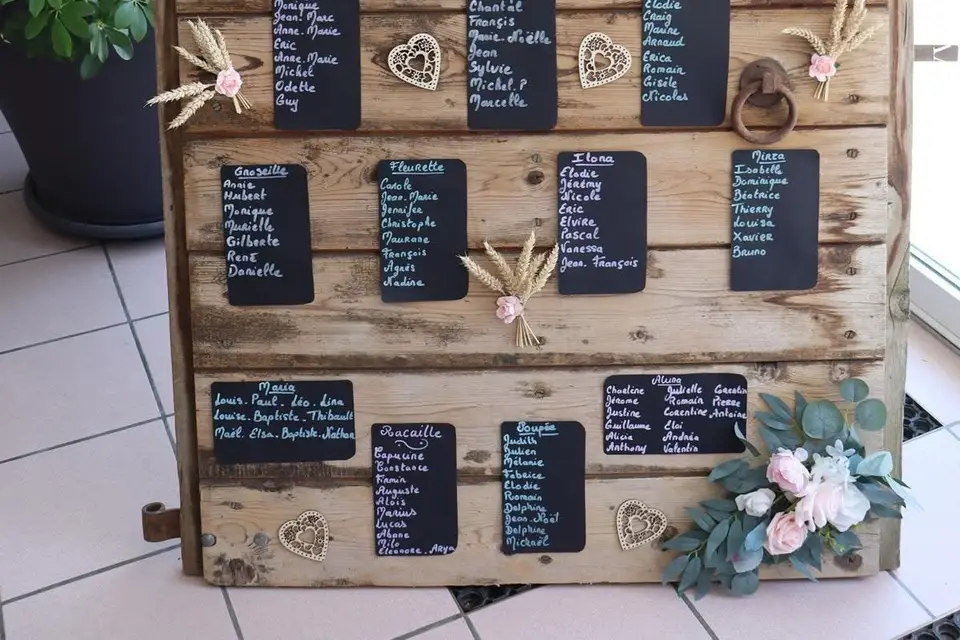 Monique
Jean. Marc
Anne. Marie
Eric
Anne. Marie
Michel
Odette
Guy
Chantal
François
Marie. Noëlle
Jean
Sylvie
Michel. P
Marcelle
Elodie
Craig
Marine
Arnaud
Erica
Romain
Gisèle
Nicolas
Groseille
Annie
Hubert
Monique
Murielle
Gilberte
René
Danielle
Fleurette
Carole
Jean. Marie
Jennifer
Christophe
Maurane
François
Agnès
Nadine
Ilona
Elodie
Jérémy
Nicole
Eric
Elvire
Pascal
Vanessa
Jean. François
Mirza
Isabelle
Dominique
Béatrice
Thierry
Louisa
Xavier
Bruno
Maria
Louis. Paul. Léo. Lina
Louise. Baptiste. Thibault
Maël. Elsa. Baptiste. Nathan
Racaille
Capucine
Constance
Firmin
Auguste
Aloïs
Marius
Lucas
Abane
Milo
Eleonore. Arya
Poupée
Judith
Julien
Mélanie
Fabrice
Elodie
Romain
Delphine
Jean. Noël
Delphine
Mickaël
Aluna
Charlène Julielle Corentin
Jérôme Romain Pierre
Justine Corentine Antoine
Guillaume Eloi
Alicia Andréa
Anthony Valentin